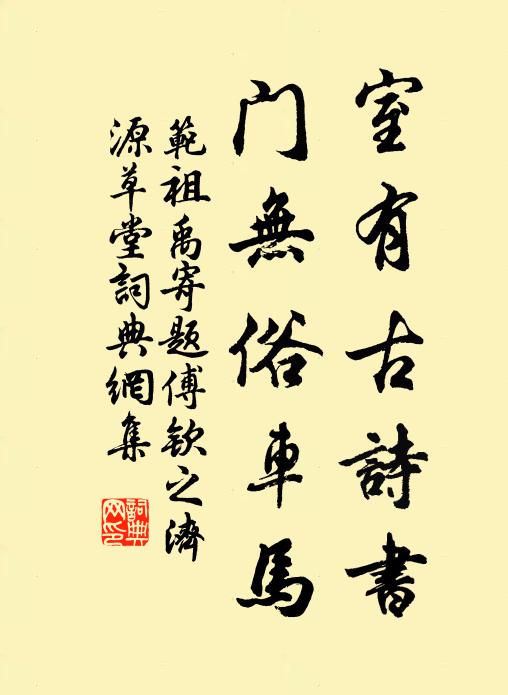 室有古詩書
门無俗車馬
範祖禹寄題傅欽之濟
源草堂詞典網集
詞典
网印